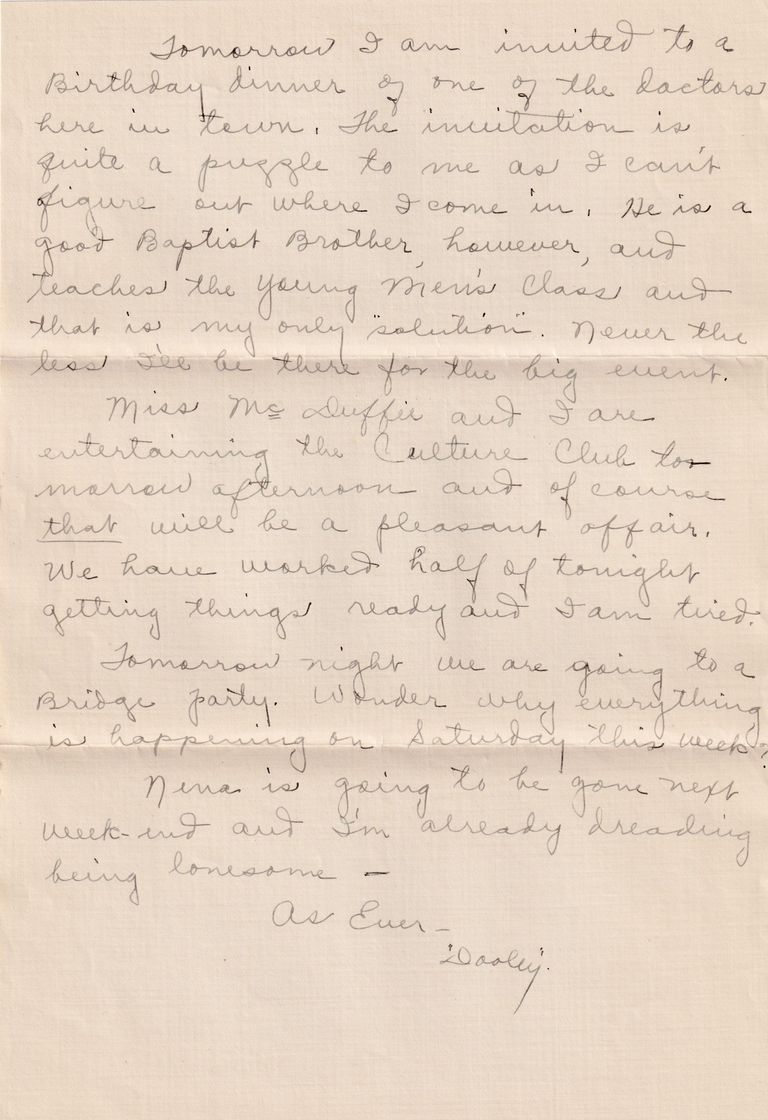 Tomorrow I am invited to a
Birthday dinner of one of the doctors
here in town. The invitation is
quite a puzzle to me as I can't
figure out where I come in. He is a
good Baptist Brother, however, and
teaches the Young Men's Class and
that is my only "solution". Never the
less I'll be there for the big event.
Miss McDuffie and I are
entertaining the Culture Club to-
morrow afternoon and of course
that will be a pleasant affair.
We have worked half of tonight
getting things ready and I am tired.
Tomorrow night we are going to a
Bridge party. Wonder why everything
is happening on Saturday this week?
Nena is going to be gone next
week-end and I'm already dreading
being lonesome —
As Ever —
"Dooley".